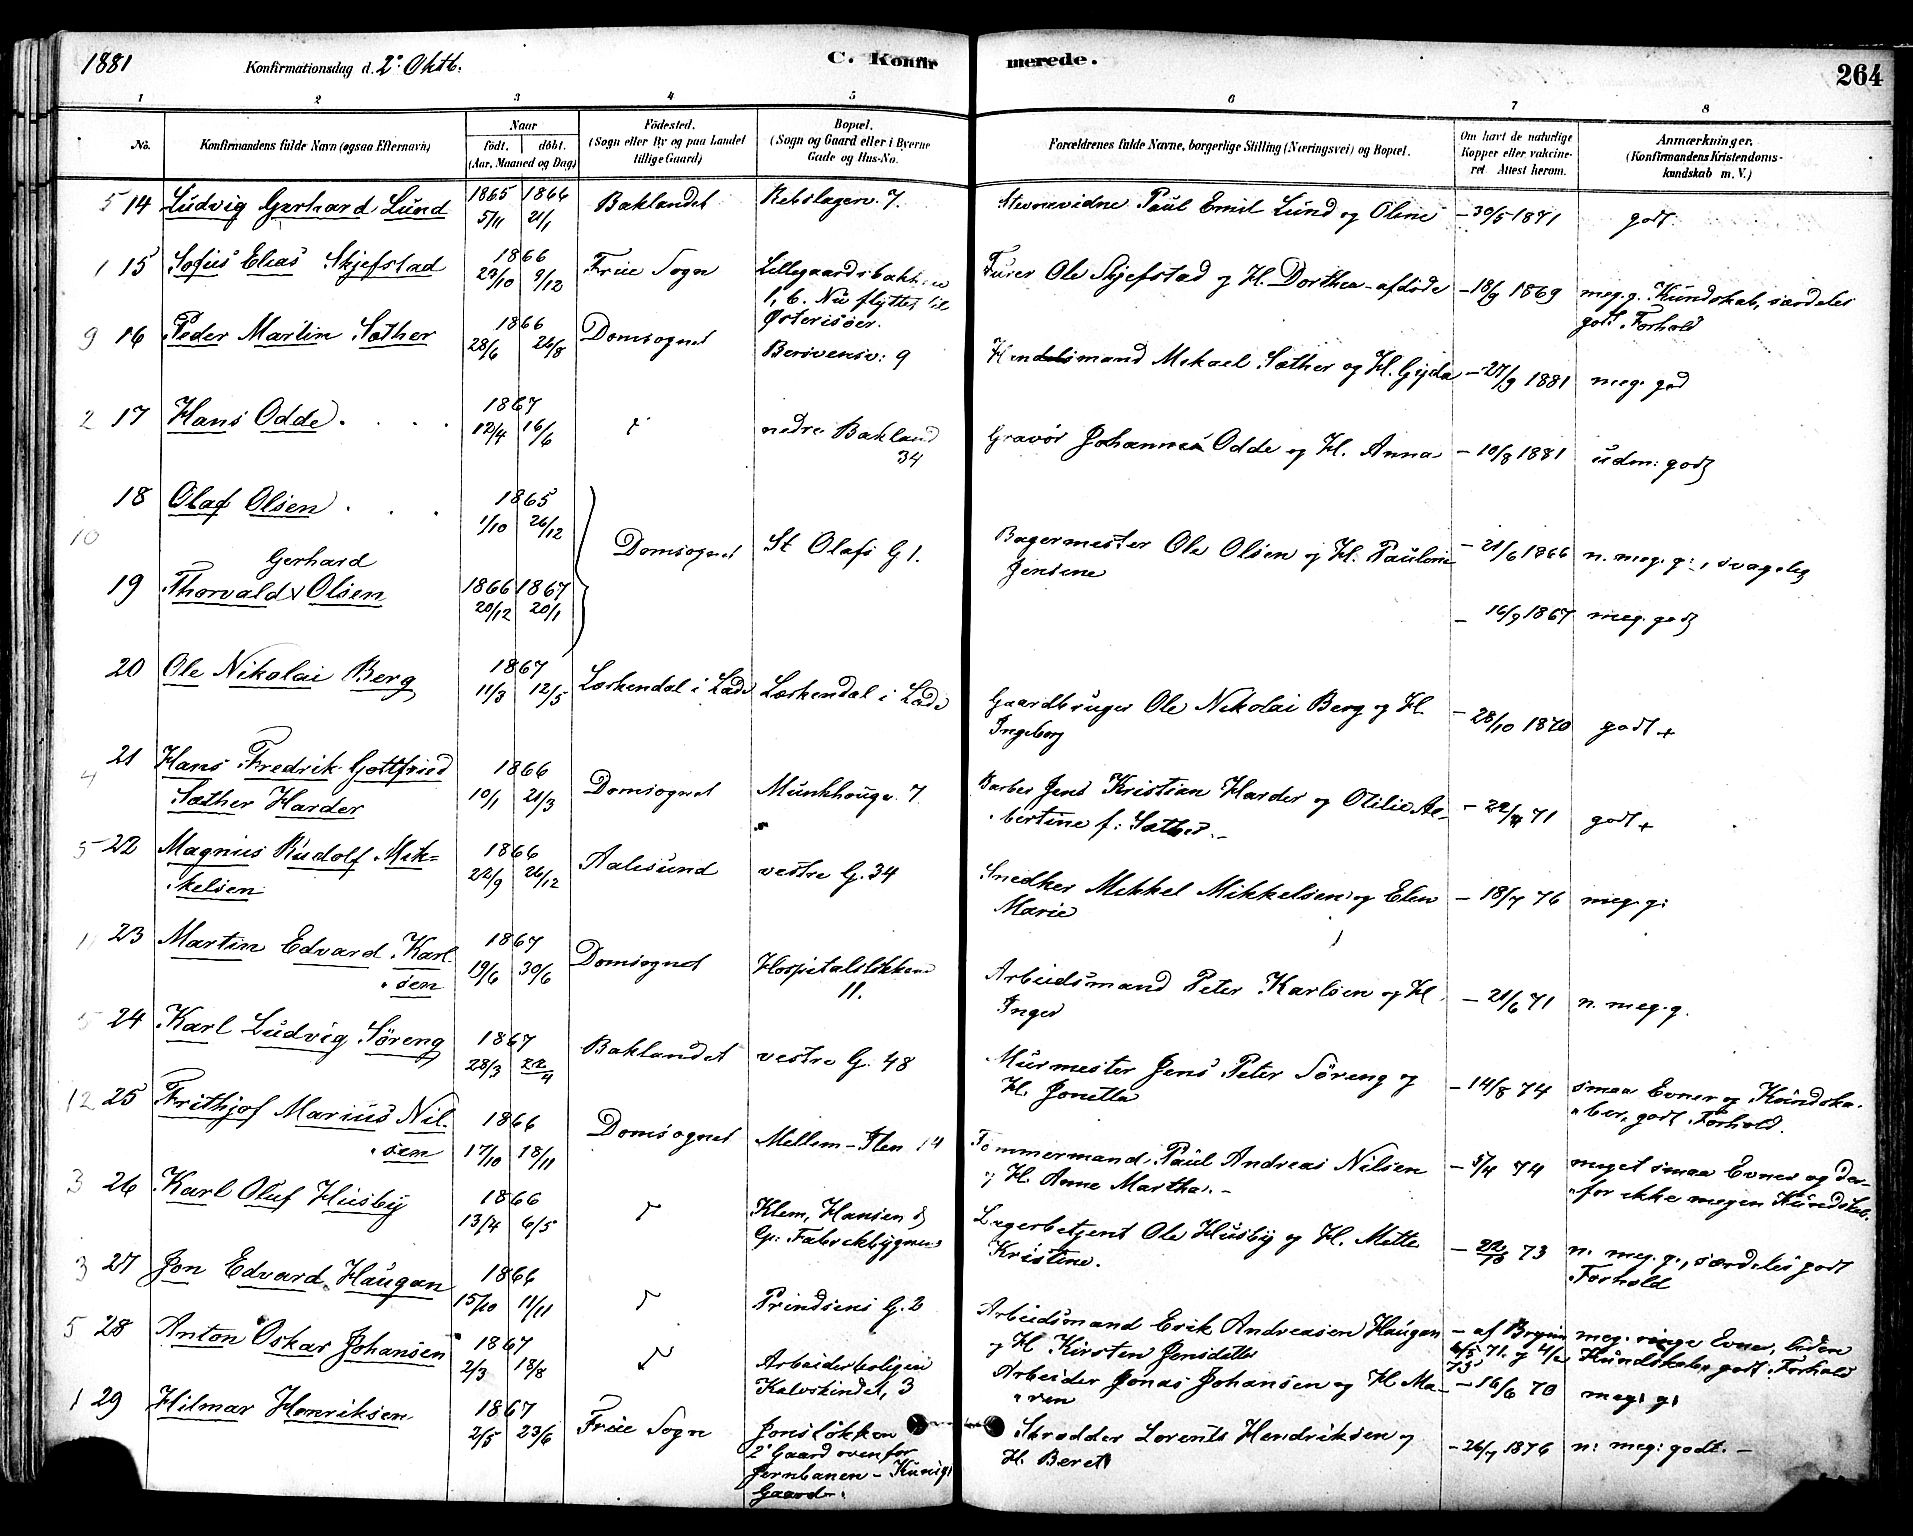 1881 Konfirmationsdag d. 2' Oktb. C. Konfirmerede. 264
1 2 3 4 5 6 7 8
No. Konfirmandens fulde Navn (ogsaa Efternavn) Naar født. døbt. (Aar, Maaned og Dag) Fødested. (Sogn eller By og paa Landet tillige Gaard) Bopæl. (Sogn og Gaard eller i Byerne Gade og Hus-No. Forældrenes fulde Navne, borgerlige Stilling (Næringsvei) og Bopæl. Om havt de naturlige Kopper eller vakcineret Attest herom. Anmærkninger. (Konfirmandens Kristendomskundskab m. V.)
5 14 Ludvig Gerhard Lund 1865 5/11 1866 21/1 Baklandet Rebslagerv. 7. Stevnevidne Paul Emil Lund og Oline - 30/5 1881 godt.
1 15 Sofus Elias Skjefstad 1866 29/10 9/12 Frue Sogn Lillegaardsbakken
1, b. Nu flyttet til
Østerisøer.
Furer Ole Skjefstad og H. Dorthea - afdøde - 18/9 1869 meg. g. Kundskab, særdeles
godt Forhold
9 16 Peder Martin Sæther 1866 28/6 26/8 Domsognet 9 Mikael Sæther og H. Gjda - 27/9 1881 meg. god
2 17 Hans Odde 1867 12/4 16/6 nedre Bakland
34
Gravør Johannes Odde og H. Anna - 10/8 1881 udm: godt
18 Olaf Olsen 1865 1/10 26/12
10 Domsognet St Olafs G 1. Bagermester Ole Olsen og H. Pauline
Jensine
- 21/6 1866 n. meg. g:, svagelig
Gerhard
19 Thorvald Olsen 1866 20/12 1867 20/1 - 16/9 1867 meg. godt
20 Ole Nikolai Berg 1867 11/3 12/5 Lerkendal i Lade Lerkendal i Lade Gaardbruger Ole Nikolai Berg og H.
Ingeborg
- 28/10 1870 godt +
4 21 Hans Fredrik Gottfried
Sæther Harder
1866 10/1 21/3 Domsognet Munkhougv. 7 Barber Jens Kristian Harder og Otilie Al-
bertine f: Sæther. -
71 godt +
5 22 Magnus Rudolf Mik=
kelsen
1866 22/9 26/12 Aalesund vestre G. 34 Snedker Mikkel Mikkelsen og Elen
Marie
- 18/7 76 meg. g:
11 23 Martin Edvard Karl-
sen
1867 19/6 30/6 Domsognet Hospitalsløkken
11.
Arbeidsmand Peter Karlsen og H.
Inger
- 21/6 71 n. meg. g.
5 24 Karl Ludvig Søreng 1867 28/3 22/4 Baklandet vestre G. 48 Murmester Jens Peter Søreng og
H. Jonetta
- 14/8 74 smaa Evner og Kundska-
ber, godt Forhold.
12 25 Frithjof Marius Nil-
sen
1866 17/10 18/11 Domsognet Mellem-Ilen 14 Tømmermand Paul Andreas Nilsen
og H. Anne Martha. -
- 5/4 74 meget smaa Evner og der-
for ikke megen Kundskab.
3 26 Karl Oluf Husby 1866 13/4 6/5 Klem, Hansen &
Lagerbetjent Ole Husby og H. Mette
Kristine.
73 n: meg. g., særdeles godt
Forhold
3 27 Jon Edvard Haugan 1866 15/10 11/11 Prindsens G. 2 Arbeidsmand Erik Andreasen Haugan
og H Kirsten Jonsdatter
- af Brynin
meg: ringe Evner, liden
Kundskab, godt Forhold
5 28 Anton Oskar Johansen 1867 2/3 18/8 Arbeiderboligen
Kalvskindet, 3
Arbeider Jonas Johansen og H Ma-
ren
- 16/6 70 meg: g:
1 29 Hilmar Henriksen 1867 2/5 23/6 Frue Sogn Jonsløkken
2' Gaard ovenfor
Jernbanen -
Gaard.
Skrædder Lorents Hendriksen og
H. Beret
- 26/7 1876 n: meg: godt. -